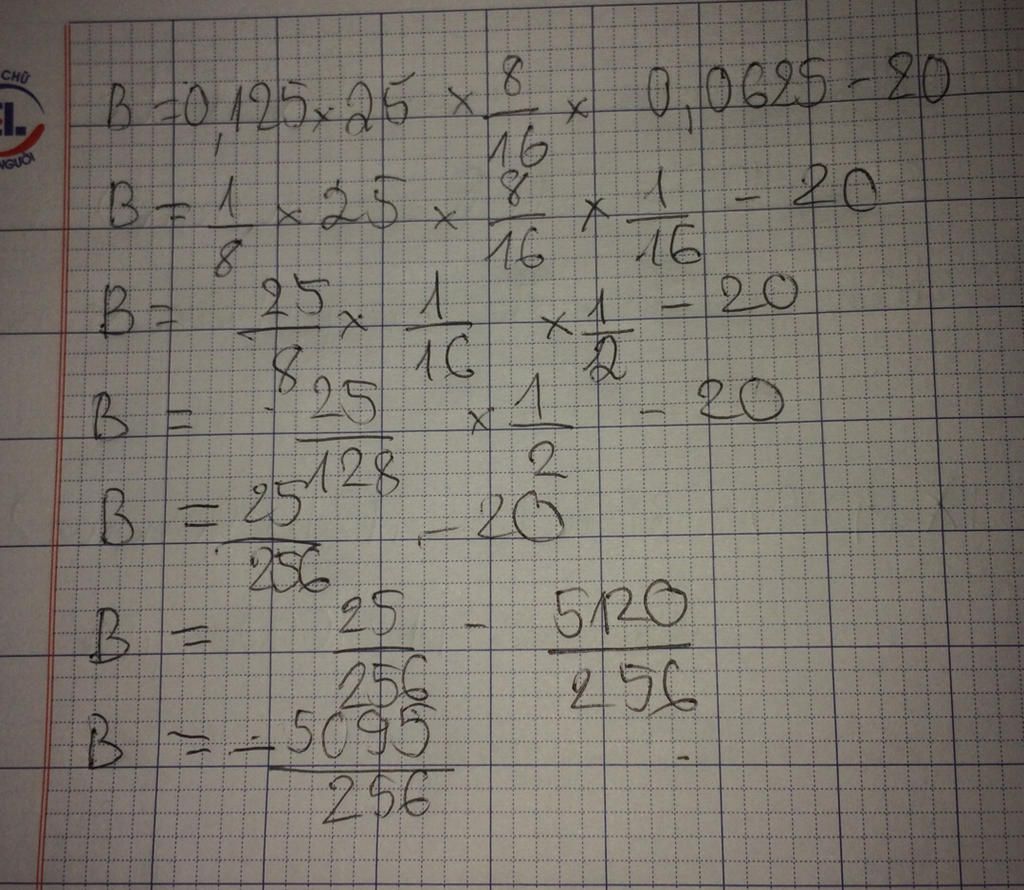 CHỮ
EL
NGƯỜI
B = 0,125 × 25 × 8/16 × 0,0625 - 20
B = 1/8 × 25 × 8/16 × 1/16 - 20
B = 25/8 × 1/16 × 1/2 - 20
B = 25/128 × 1/2 - 20
B = 25/256 - 20
B = 25/256 - 5120/256
B = -5095/256